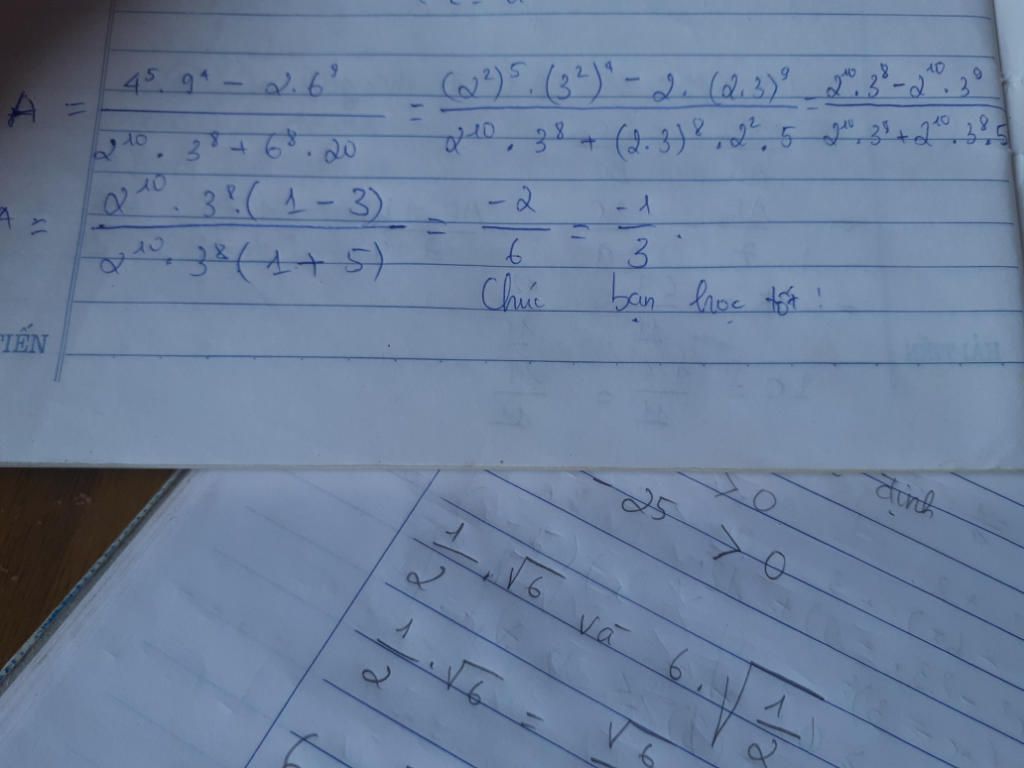 A = \frac{4^5 . 9^4 - 2.6^9}{2^{10} . 3^8 + 6^8 . 20} = \frac{(2^2)^5 . (3^2)^4 - 2. (2.3)^9}{2^{10} . 3^8 + (2.3)^8 . 2^2 . 5} = \frac{2^{10}.3^8 - 2^{10}.3^9}{2^{10}.3^8 + 2^{10}.3^8.5}
A = \frac{2^{10} . 3^8.(1 - 3)}{2^{10} . 3^8(1 + 5)} = \frac{-2}{6} = \frac{-1}{3} .
Chúc bạn học tốt !
TIẾN
- 25 > 0 định
> 0
\frac{1}{2} . \sqrt{6} và 6 . \sqrt{\frac{1}{2}}
\frac{1}{2} . \sqrt{6} = \sqrt{6}